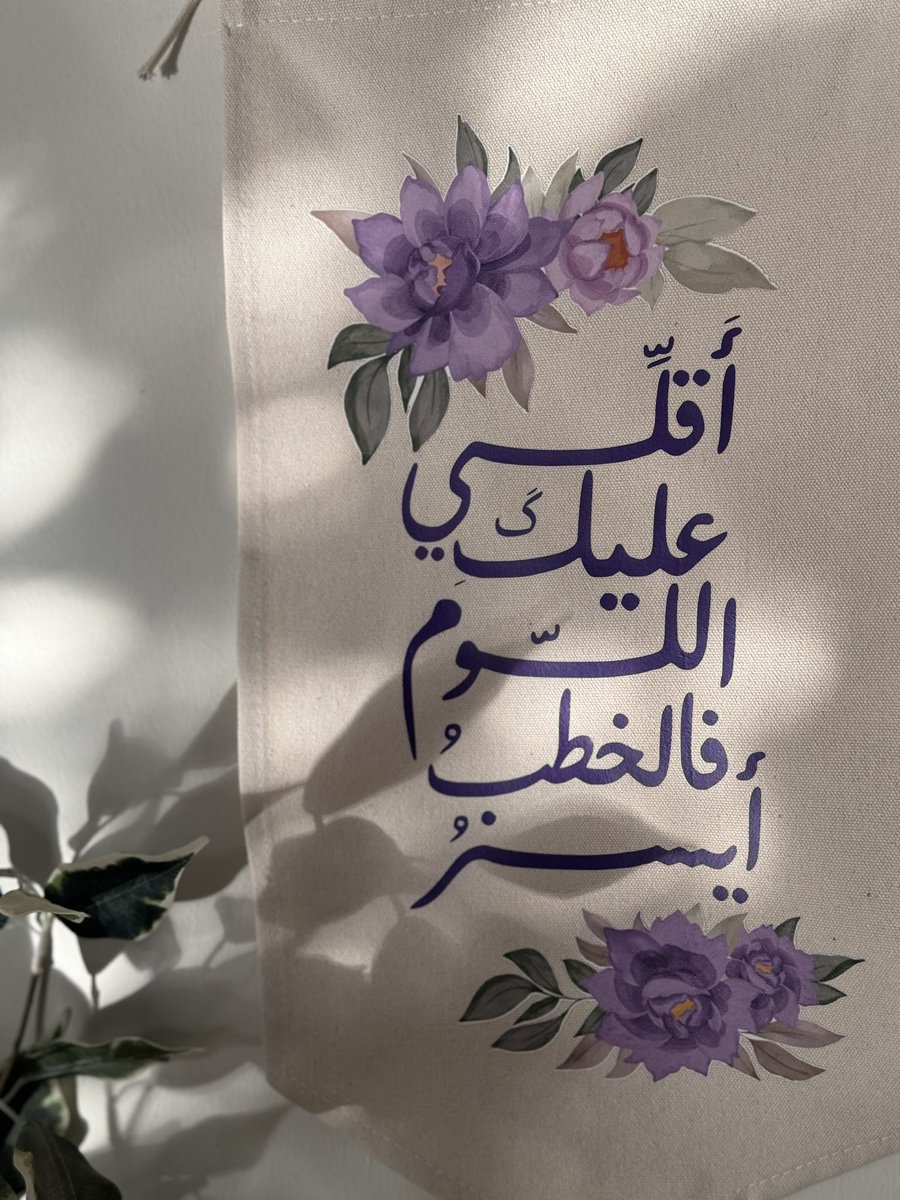 أَقلِّي
عليك
اللّومَ
فالخطبُ
أيسرُ